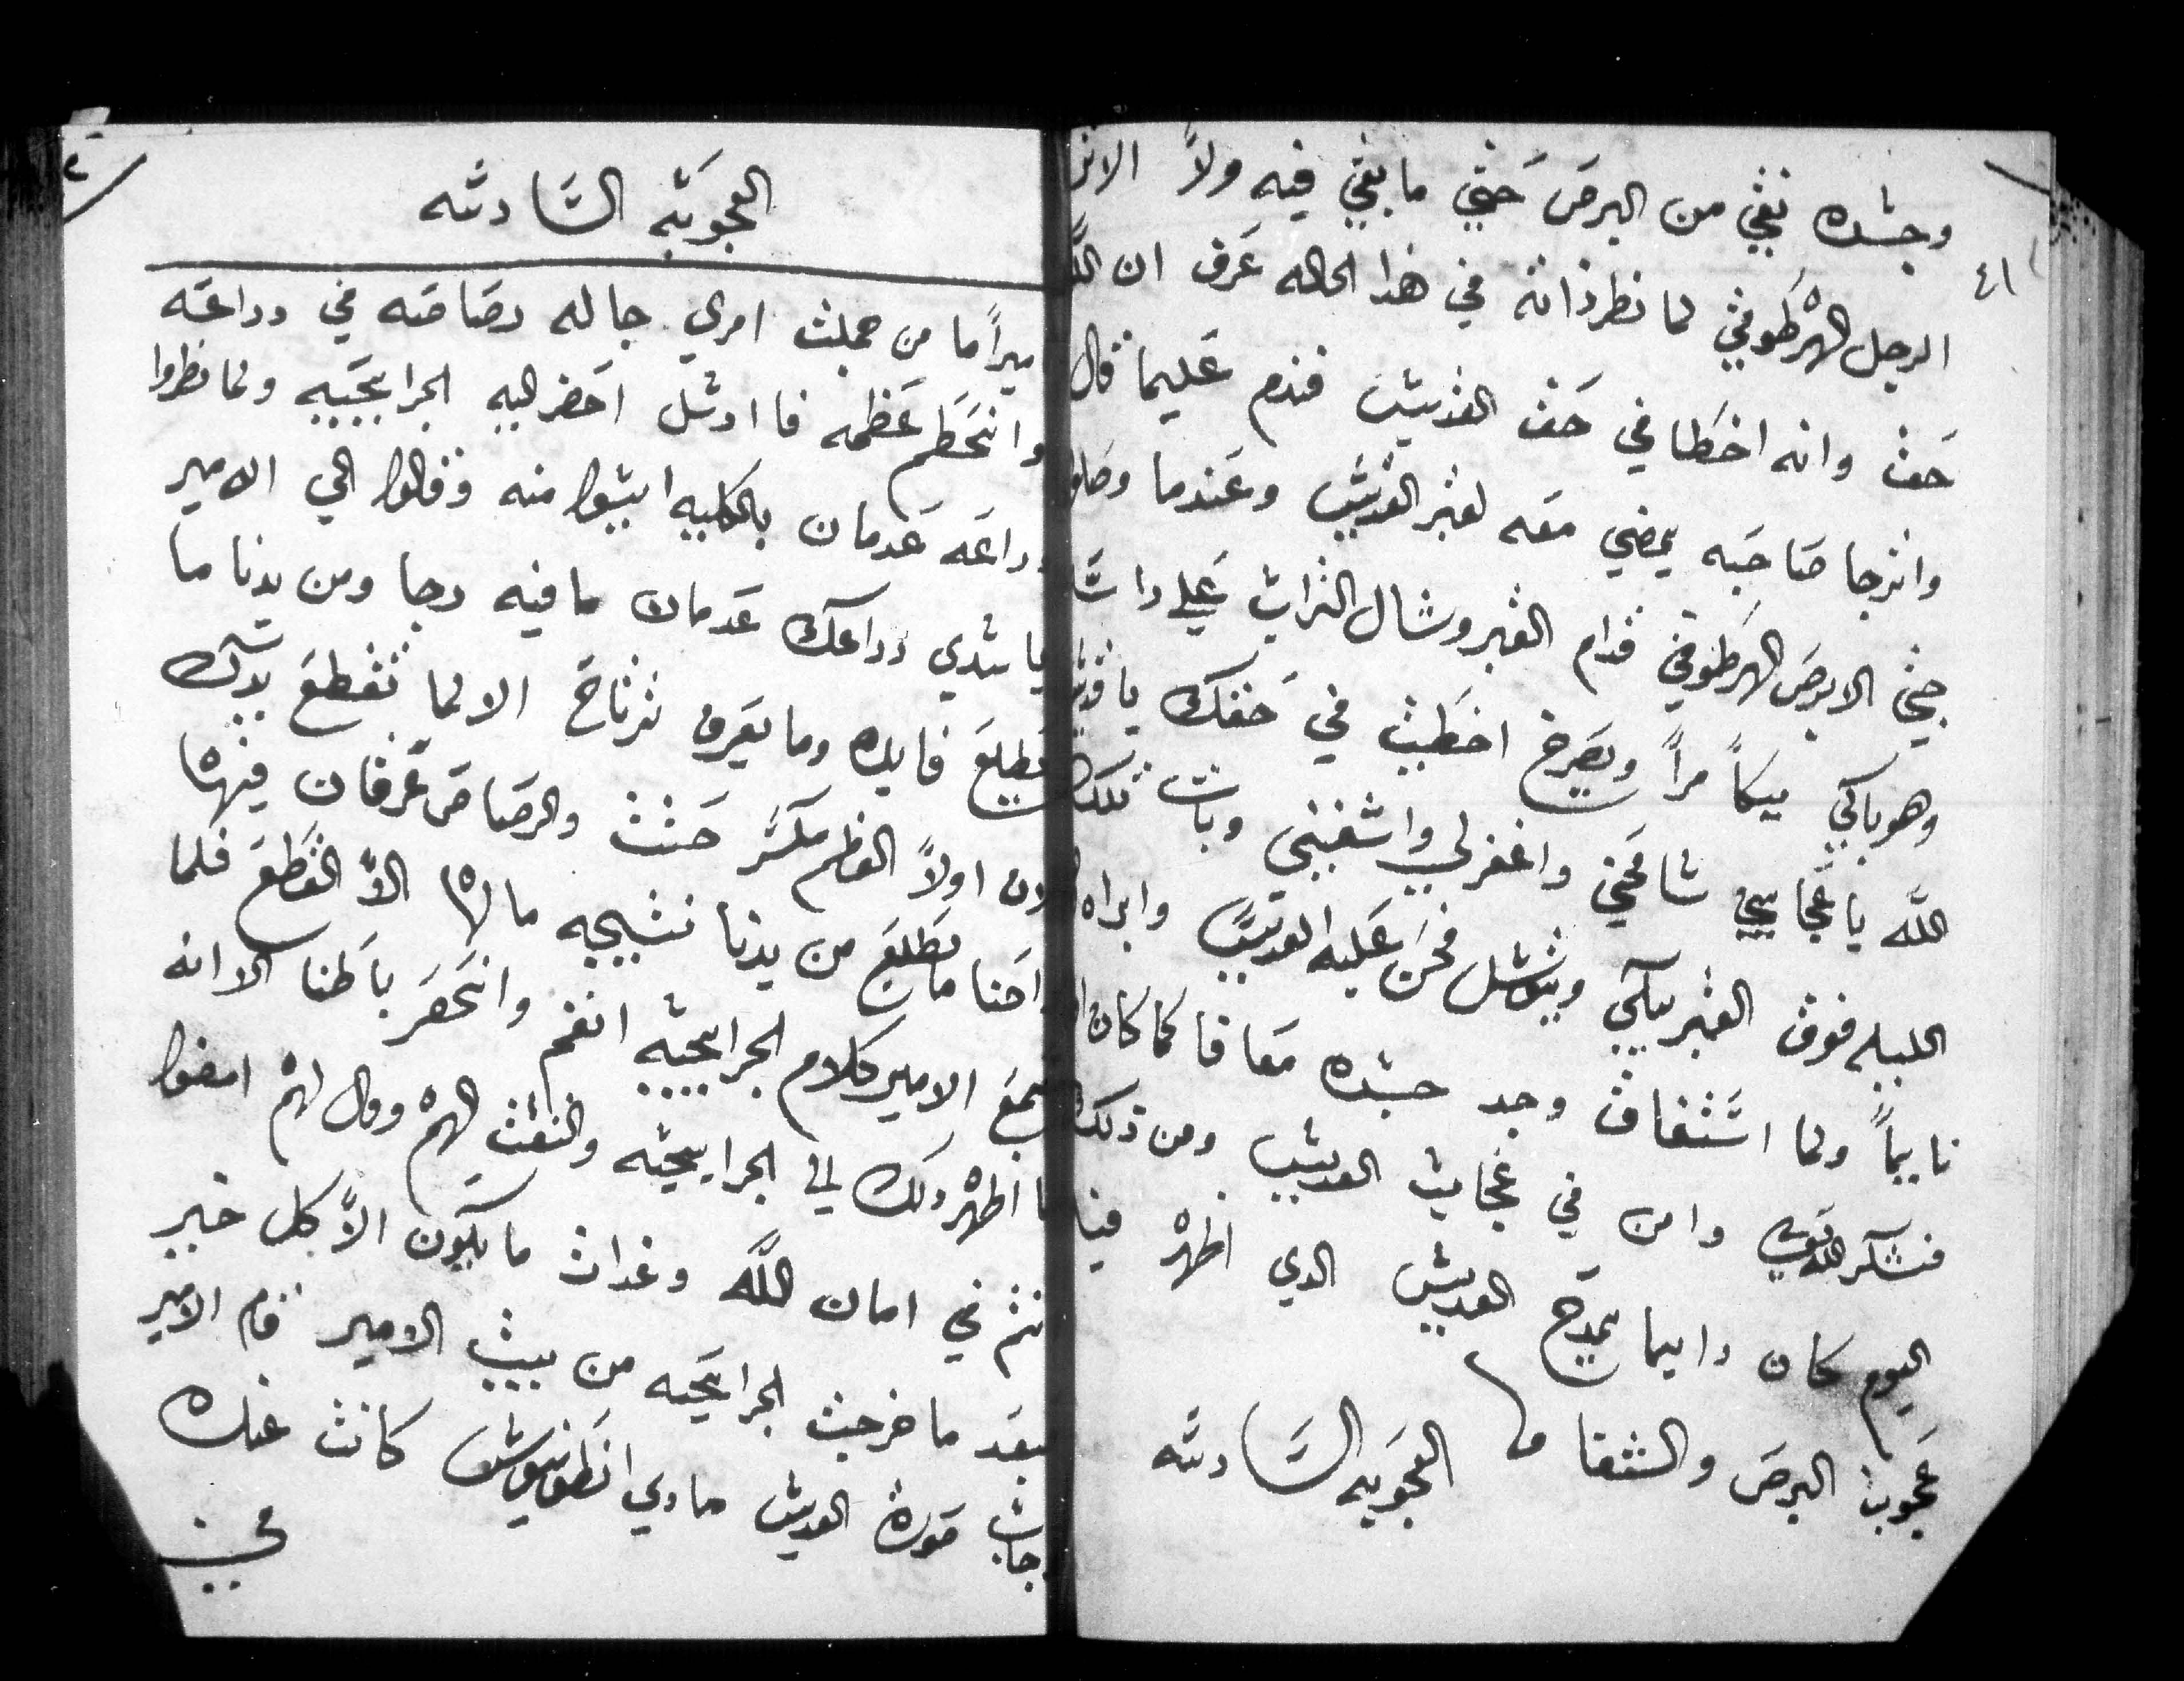 وجسده نقي من البرص حتي ما بقي فيه ولاً الاثر
٤١
الرجل الهرطوقي لما نظر ذاته في هذا الحاله عرف ان الله
حق وانه اخطا في حق القديس فندم عليما قال
واترجا صاحبه يمضي معه لقبر القديس وعندما وصلوا
جتي الابرص الهرطوقي قدام القبر وشال التراب علي راس
وهو باكي بيكاً مراً ويصرخ اخطيت في حقك يا قديس
الله يا عجايبي شافيني واغفر لي واشفيني وبات تلك
الليله فوق القبر يبكي ويتوسل فحن عليه القديس وابراه
نايماً ولما استفاق وجد جسده معافا كما كان
فشكر الله وامن في عجايب القديس ومن ذلك
اليوم كان دايما يمدح القديس الدي اظهر فيه
عجوبة البرص والشفا العجوبه السادسه
العجوبه السادسه
ميراً ما من حملت امري جا له رصاصه في دراعه
وانحطم عظمه فاارسل احضر اليه الجرايحيه ولما نظروا
دراعه عدمان بالكليه ايسوا منه وقالوا الي الامير
يا سيدي دراعك عدمان ما فيه رجا ومن يدنا ما
يطلع فايده وما تعرف ترتاح الا لما تقطع يدك
لان اولاً العظم مكسر حتت والرصاص غرقان فيها
واحنا ما يطلع من يدنا نتيجه ما لها الاً القطع فلما
سمع الامير كلام الجرايحيه انغم وانحصر باطنا الا انه
ما اظهر دلك الي الجرايحيه والتفت اليهم وقال لهم امضوا
انتم في امان الله وغدات ما يكون الاً كل خير
فبعد ما خرجت الجرايحيه من بيت الامير قام الامير
جاب صورة القديس ماري انطونيوس كانت عنده
في